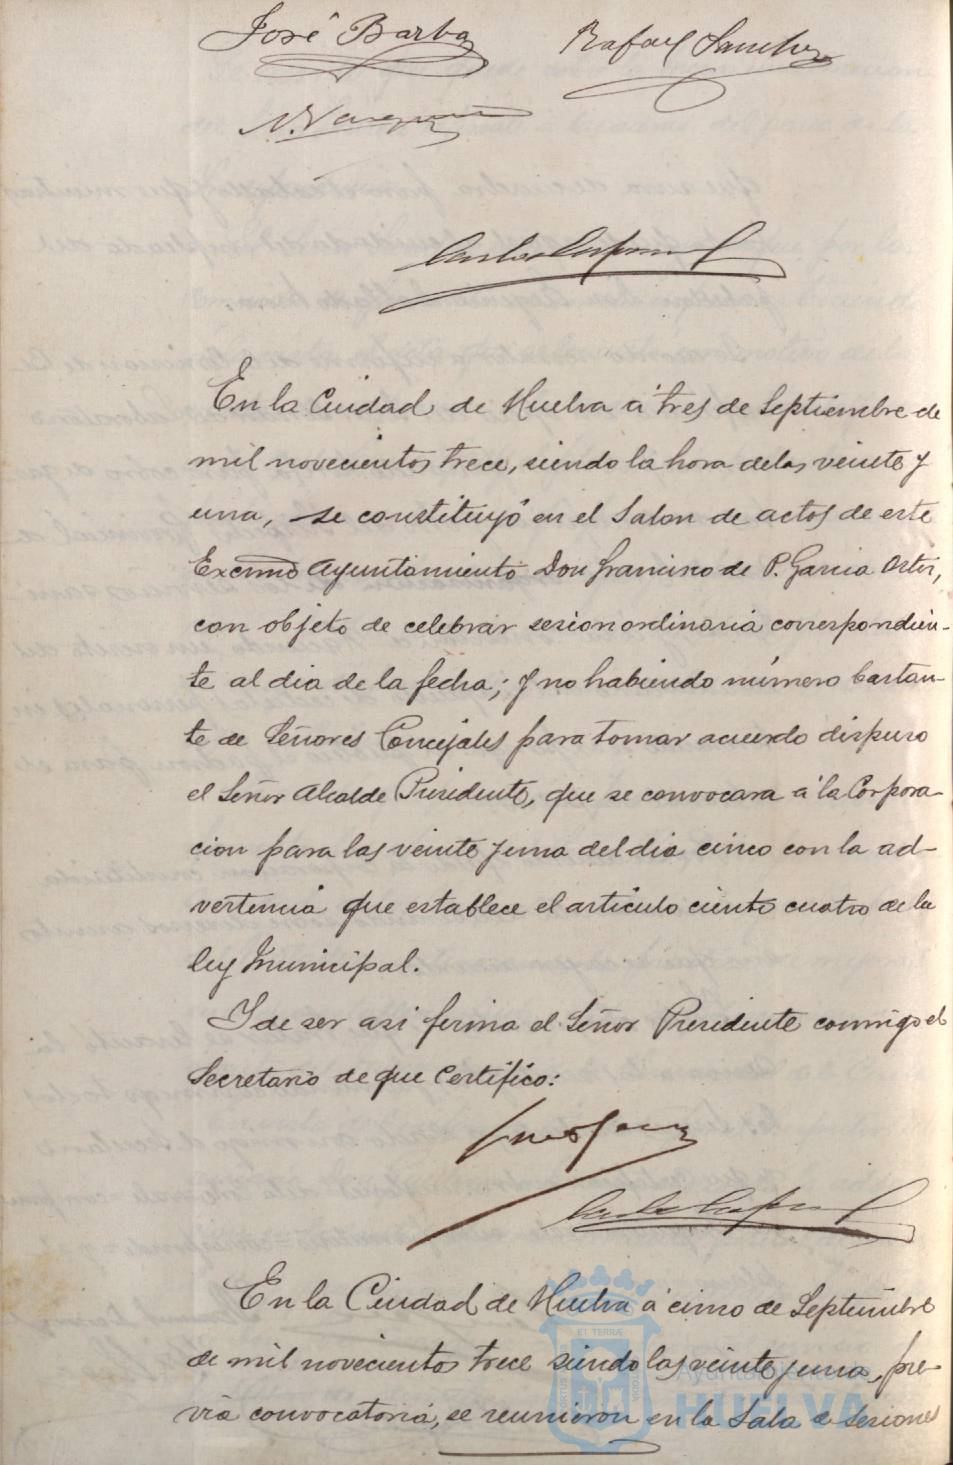 José Barba Rafael Sanchez
N. Vazquez
En la Ciudad de Huelva á tres de Septiembre de
mil novecientos trece, siendo la hora de las veinte y
una, se constituyó en el Salon de actos de este
Excmo Ayuntamiento Don Francisco de P. Garcia Ortiz,
con objeto de celebrar sesion ordinaria correspondien-
te al dia de la fecha; y no habiendo número bastan-
te de Señores Concejales para tomar acuerdo dispuso
el Señor Alcalde Presidente, que se convocara á la Corpora-
cion para las veinte y una del dia cinco con la ad-
vertencia que establece el articulo ciento cuatro de la
ley Municipal.
Y de ser asi firma el Señor Presidente conmigo el
Secretario de que Certifico:
En la Ciudad de Huelva á cinco de Septiembre
de mil novecientos trece siendo las veinte y una, pre-
via convocatoria, se reunieron en la Sala de Sesiones
Ayuntamiento de
HUELVA